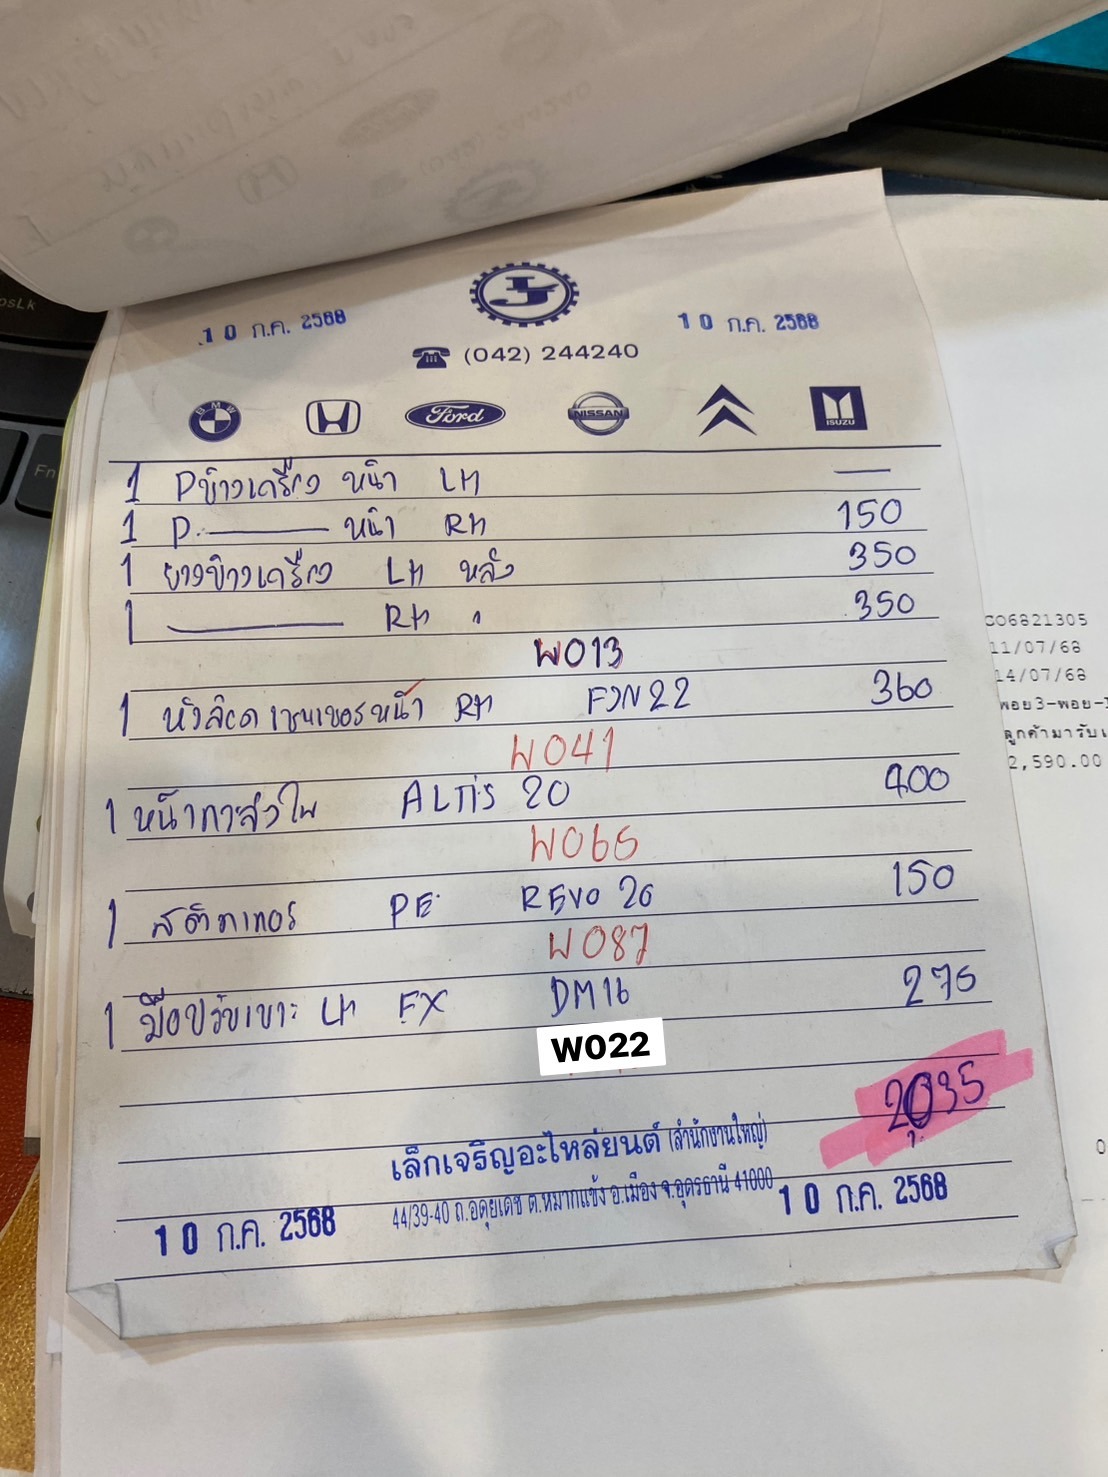 psLk
Fn
10 ก.ค. 2568
10 ก.ค. 2568
(042) 244240
BMW
Ford
NISSAN
ISUZU
1 Pข้างเครื่อง หน้า LH —
1 P. — หน้า RH 150
1 ยางข้างเครื่อง LH หลัง 350
1 — RH " 350
W013
1 หัวล๊อคเซนเซอร์หน้า RH FVN22 360
W041
1 หน้ากาส่งใบ ALTIS 20 400
W065
1 สติกเกอร์ PE REVO 20 150
W087
1 มือปรับเบาะ LH FX DM16 275
W022
2035
เล็กเจริญอะไหล่ยนต์ (สำนักงานใหญ่)
44/39-40 ถ.อดุยเดช ต.หมากแข้ง อ.เมือง จ.อุดรธานี 41000
10 ก.ค. 2568
10 ก.ค. 2568
CO6821305
11/07/68
14/07/68
พอย3-พอย-
ลูกค้ามารับเ
2,590.00